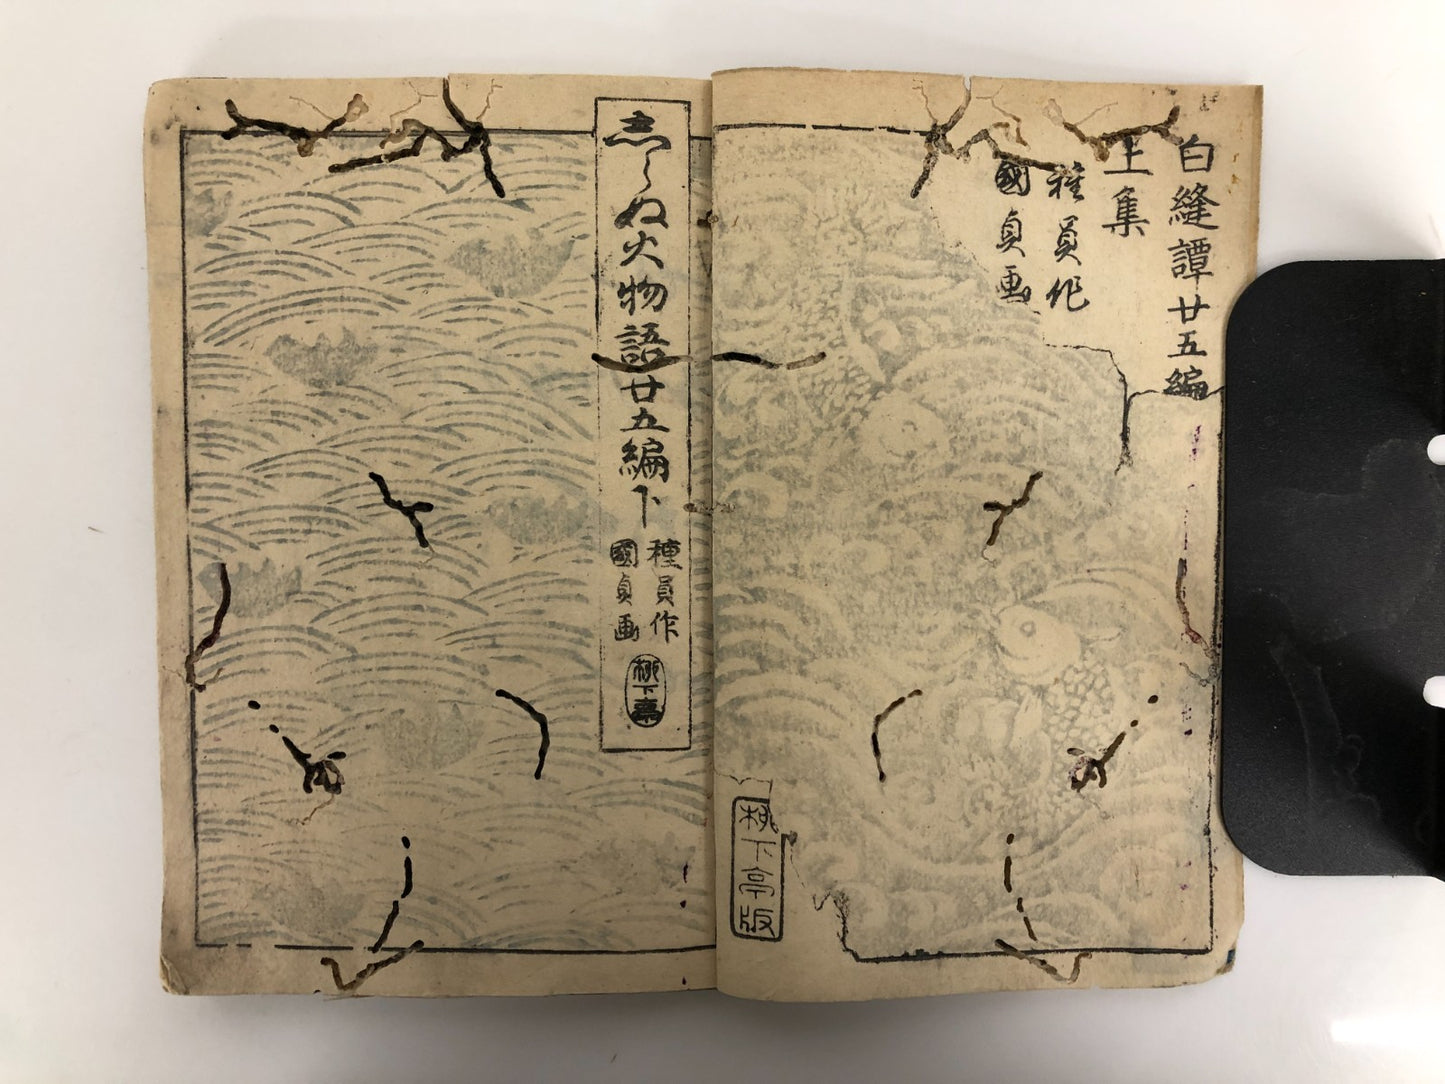 白縫譚廿五編
上集
種員作
國貞画
桃下亭版
志らぬ火物語廿五編下
種員作
國貞画
桃下亭